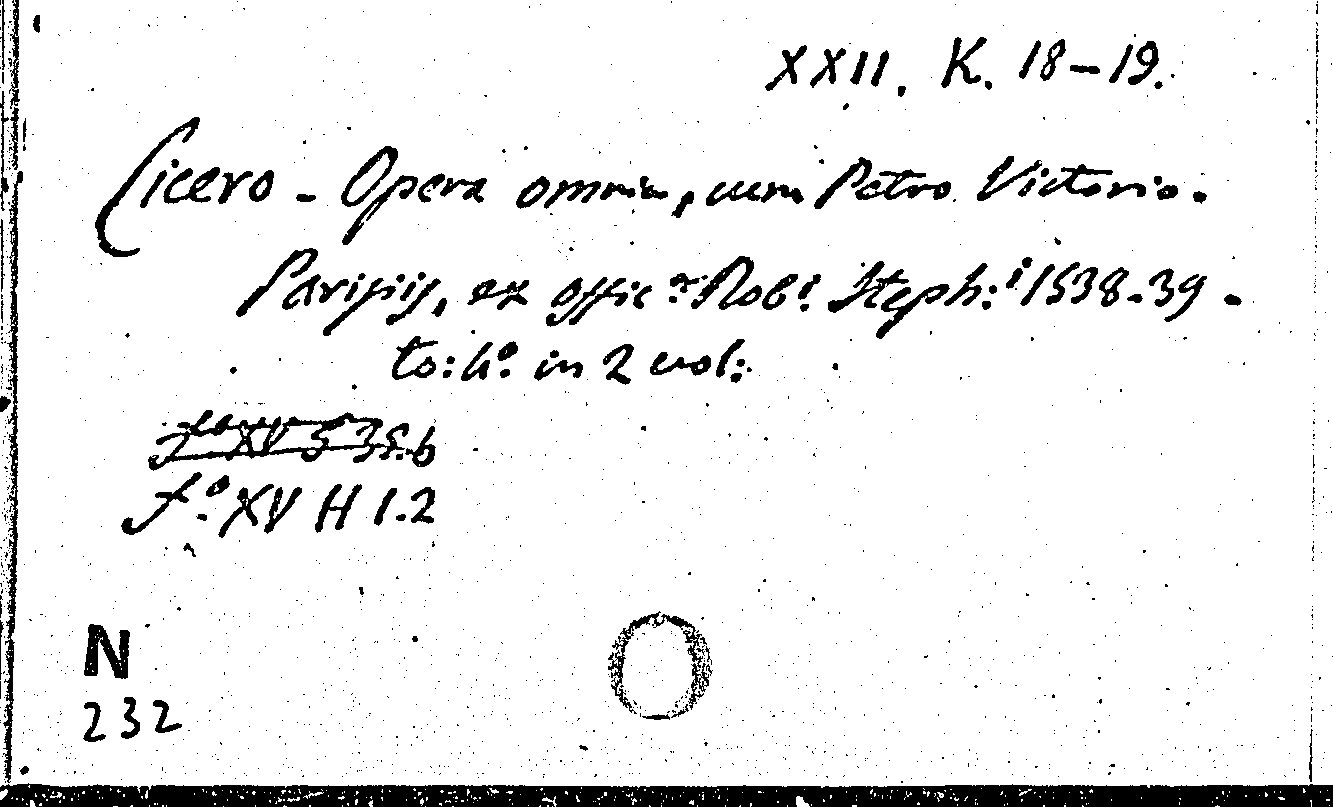 XXII. K. 18-19.
Cicero - Opera omnia, cum Petro Victorio.
Parisijs, ex offic:ª Rob:ⁱ Steph:ⁱ 1538-39 -
to: 4º. in 2 vol:
fº XV 5 35.6
f.º XV H 1.2
N
232